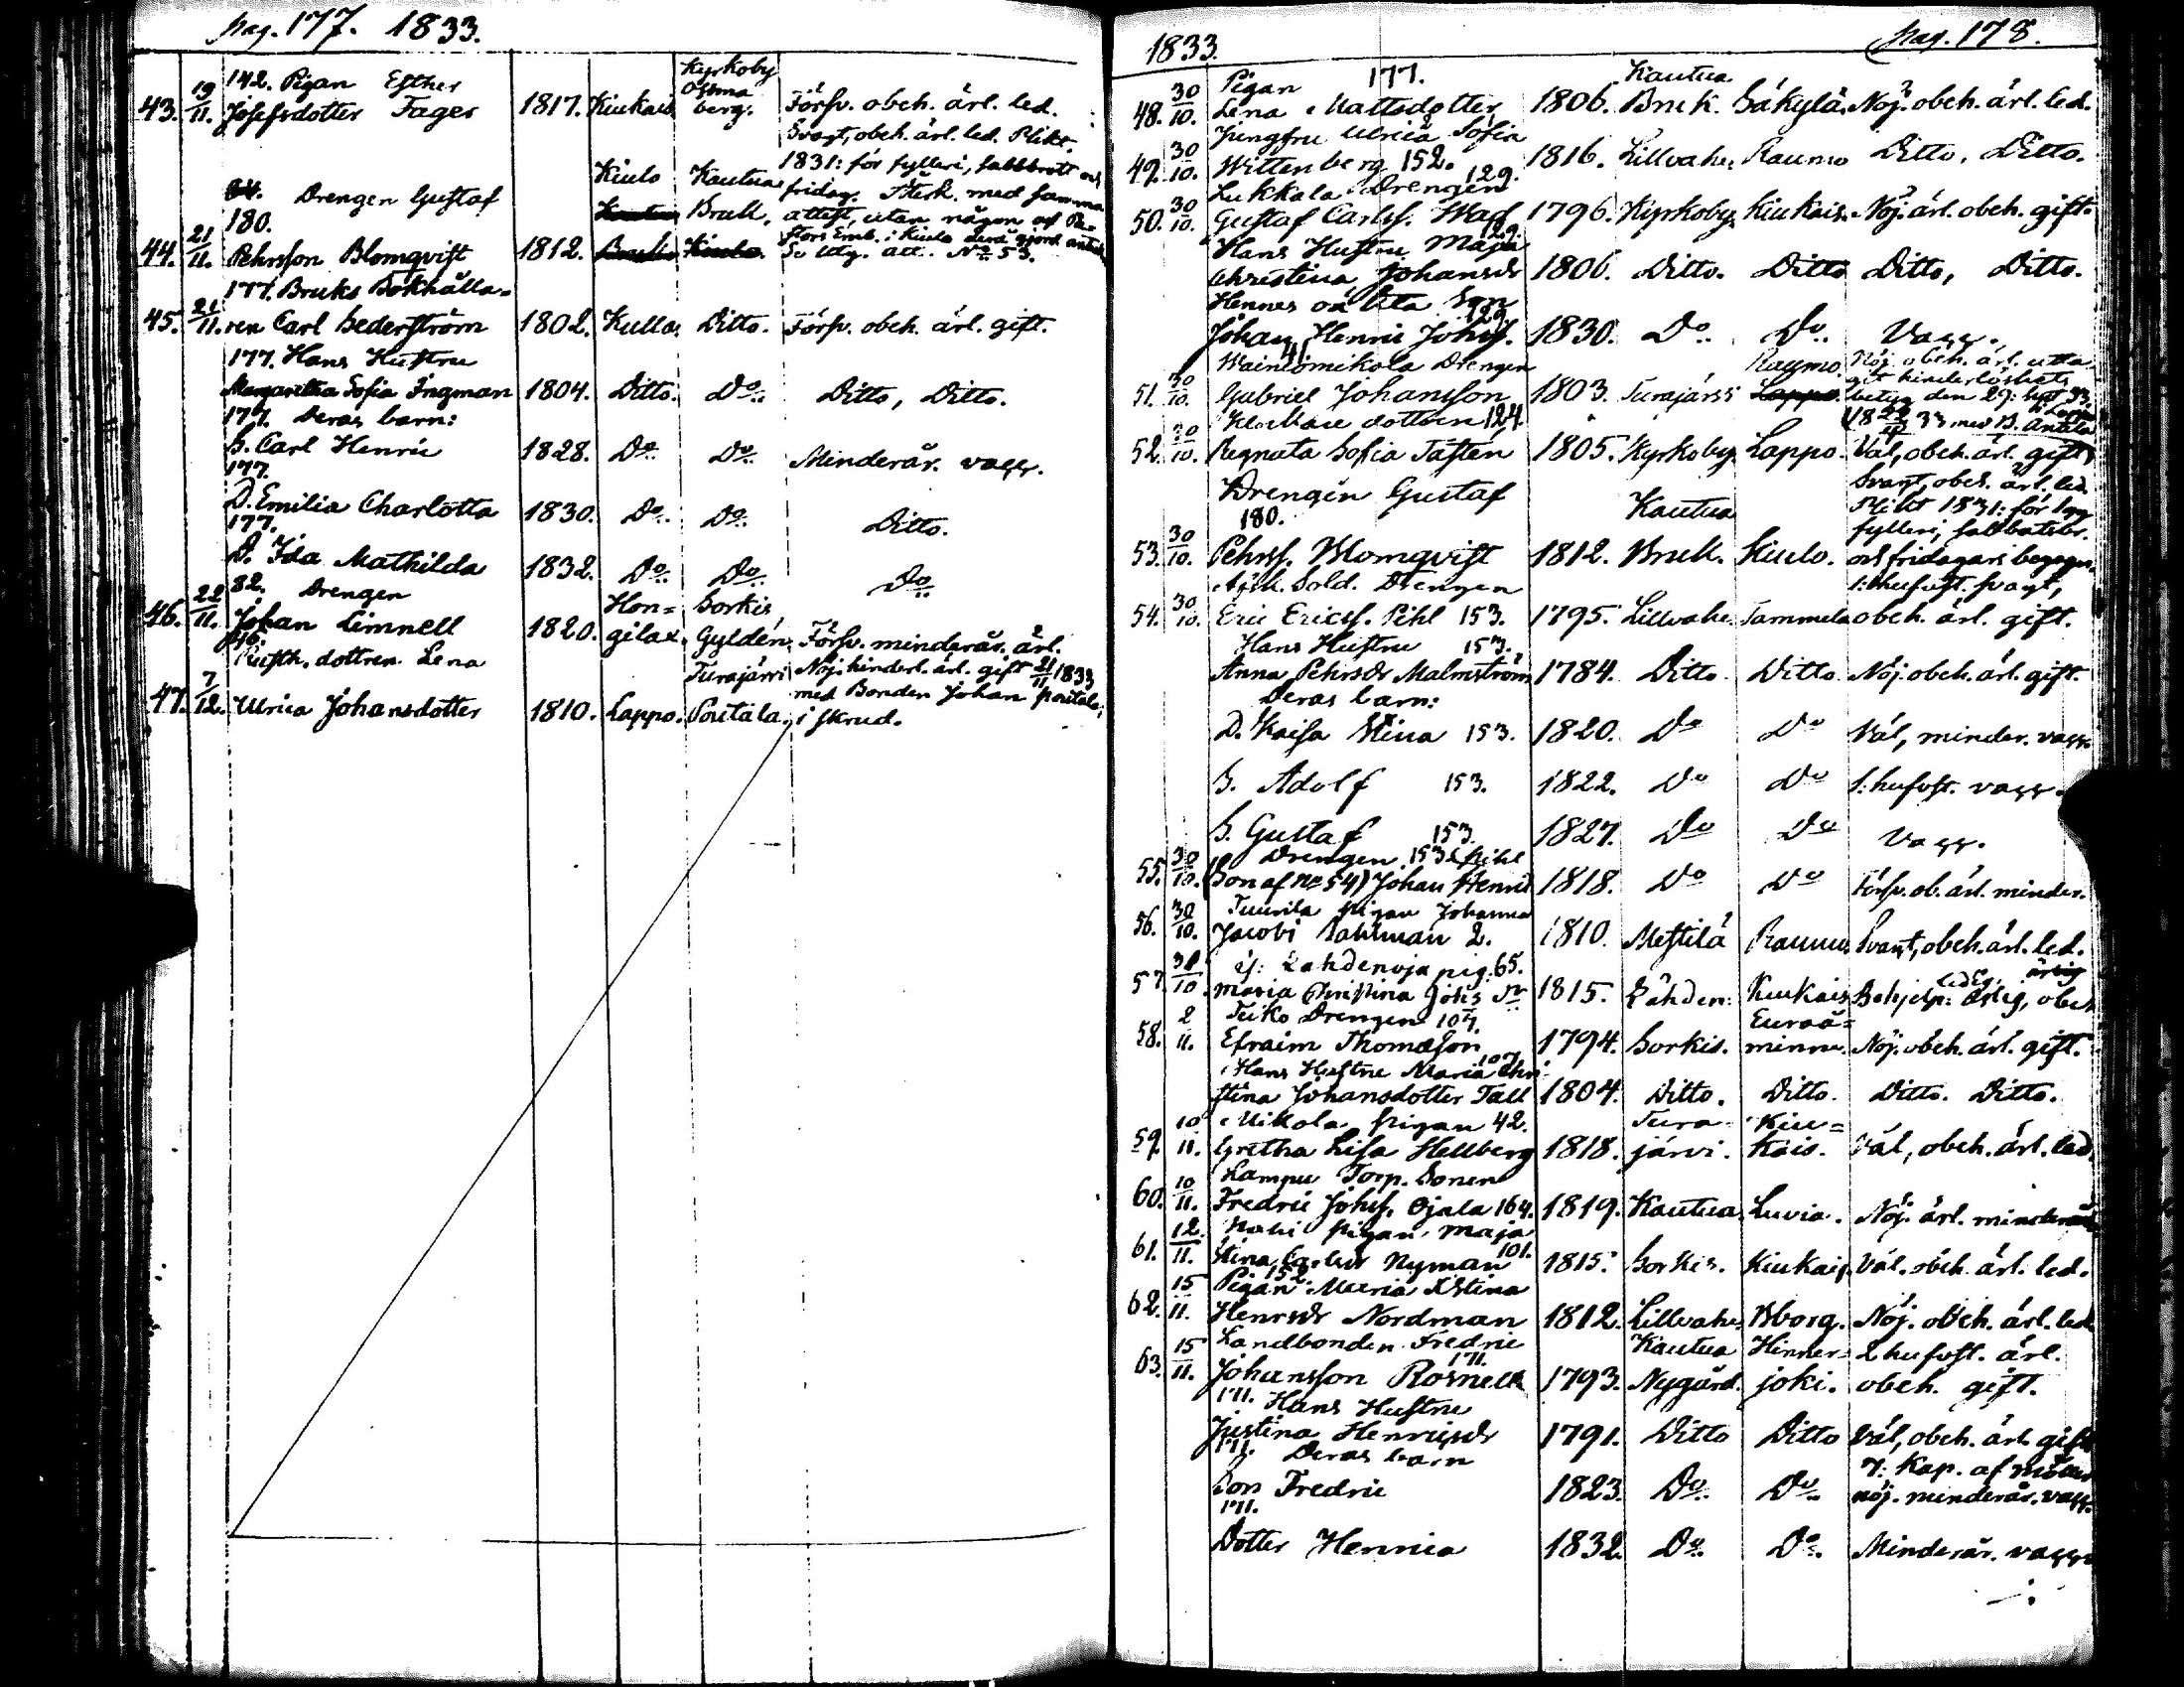 pag. 177. 1833.
43. 19/11. 142. Pigan Esther
Josefsdotter Fager 1817. Kiukais. Kyrkoby berg. Försv. obeh. ärl. led.
Svagt, obeh. ärl. led. Plikt.
1831: för fylleri, sabbbrott och
Drengen Gustaf Kiulo Kautua fridag. Återk. med samma
180. Bruk, attest, utan någon af
44. 21/11. Pehrsson Blomqvist 1812. Se utg. att. No 53.
177. Bruks Bokhålla=
45. 21/11. ren Carl Cederström 1802. Kulla. Ditto. Försv. obeh. ärl. gift.
177. Hans Hustru
Margaretha Sofia Ingman 1804. Ditto. Do. Ditto, Ditto.
177. Deras barn:
S. Carl Henric 1828. Do. Do. Minderår. vacc.
177.
D. Emilia Charlotta 1830. Do. Do. Ditto.
177.
D. Ida Mathilda 1832. Do. Do. Do.
82. Drengen
46. 22/11. Johan Limnell 1820. Hon=gilax. Sorkis, Gyldén. Försv. minderår. ärl.
Rusth. dottren Lena Turajärvi Nöj. hinderl. ärl. gift 21/11 1833
47. 7/12. Ulrica Johansdotter 1810. Lappo. Poutala. med Bonden Johan Poutala,
i skrud.
1833. pag. 178.
Pigan 177. Kautua
48. 30/10. Lena Mattsdotter 1806. Bruk. Säkylä. Nöj. obeh. ärl. led.
Jungfru Ulrica Sofia
49. 30/10. Wittenberg 152. 1816. Lillvahe. Raumo Ditto, Ditto.
Lukkala Drengen 129.
50. 30/10. Gustaf Carlss. Wad 1796. Kyrkoby. Kiukais. Nöj. ärl. obeh. gift.
Hans Hustru Maja 129.
Christina Johansdr 1806. Ditto. Ditto Ditto, Ditto.
Hennes oäkta Son 129.
Johan Henric Johss. 1830. Do. Do. Vacc.
Wainiomikola Drengen 41 Raumo Nöj. obeh. ärl. utta-
git hinderlöshets
51. 30/10. Gabriel Johansson 1803. Turajärvi Lappo. betyg den 29:
dottren 124.
52. 30/10. Regnata Sofia Tästén 1805. Kyrkoby. Lappo. Väl, obeh. ärl. gift,
Drengen Gustaf Svagt, obeh. ärl. led.
180. Kautua Plikt 1831: för
fylleri, sabbatsbr.
53. 30/10. Pehrss. Blomqvist 1812. Bruk. Kiulo. och fridagars begagn.
Afsk. Sold. Drengen 1: hufvst. svagt,
54. 30/10. Eric Ericss. Pihl 153. 1795. Lillvahe. Tammela obeh. ärl. gift.
Hans Hustru 153.
Anna Pehrsdr Malmström 1784. Ditto. Ditto. Nöj. obeh. ärl. gift.
Deras barn:
D. Kaisa Stina 153. 1820. Do Do Väl, minder. vacc.
S. Adolf 153. 1822. Do Do 1: hufvst. vacc.
S. Gustaf 153. 1827. Do Do Vacc.
Drengen 153 Pihl
55. 30/10. (Son af No 54) Johan Henric 1818. Do Do Försv. ob. ärl. minder.
Tuurila pigan Johanna
56. 30/10. Jacobi Sahlman 2. 1810. Mestilä Raumo. Svagt, obeh. ärl. led.
Lahdenoja pig. 65. ledig,
57. 31/10. Maria Christina Johs dr 1815. Lähden: Kiukais Behjelp: ärlig, obeh
Teiko Drengen 107. Euraå=
58. 2/11. Efraim Thomasson 1794. Sorkis. minne. Nöj. obeh. ärl. gift.
Hans Hustru Maria Chri- 107.
stina Johansdotter Tall 1804. Ditto. Ditto. Ditto. Ditto.
Mikola pigan 42. Tura- Kiu=
59. 10/11. Gretha Lisa Hellberg 1818. järvi. kais. Väl, obeh. ärl. led.
Lampu Torp. Sonen
60. 10/11. Fredric Johss. Ojala 164. 1819. Kautua. Luvia. Nöj. ärl. minderår.
pigan Maja
61. 12/11. Stina Carlsdr Nyman 101. 1815. Sorkis. Kiukais. Väl. obeh. ärl. led.
Pigan 152. Maria Stina
62. 15/11. Henrsdr Nordman 1812. Lillvahe. Bborg. Nöj. obeh. ärl. led
Landbonden Fredric Kautua Hinner= 2 hufvst. ärl.
63. 15/11. Johansson Rosnell 171. 1793. Nygård. joki. obeh. gift.
171. Hans Hustru
Justina Henricsdr 1791. Ditto Ditto Väl, obeh. ärl. gift
171. Deras barn 7: Kap. af
Son Fredric 1823. Do. Do. nöj. minderår. vacc.
171.
Dotter Henrica 1832. Do. Do. Minderår. vacc.